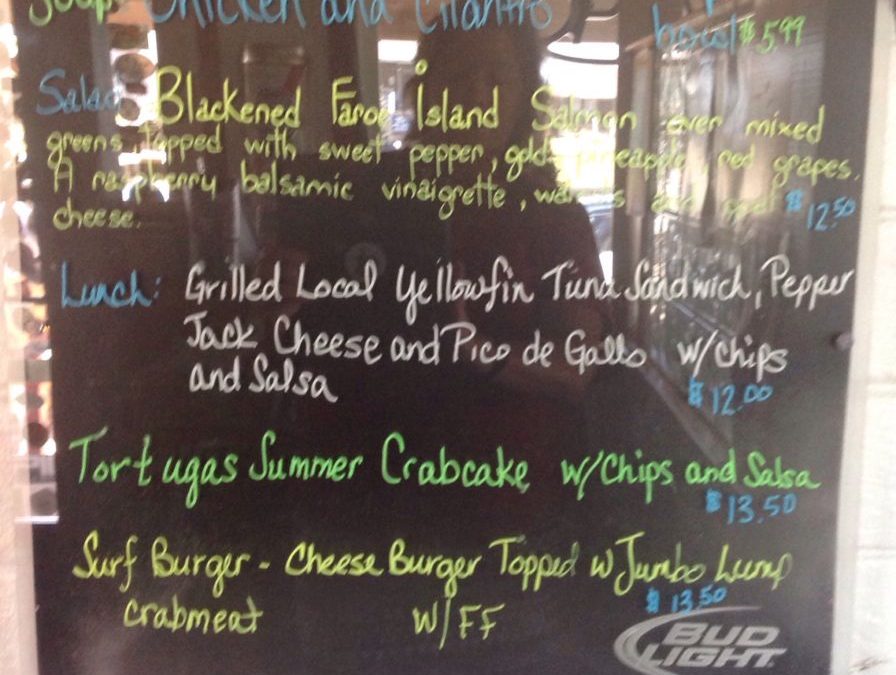 Soup: Chicken and Cilantro
bowl $5.99
Salad: Blackened Faroe Island Salmon over mixed
greens, topped with sweet pepper, gold pineapple, red grapes.
A raspberry balsamic vinaigrette, walnuts and
cheese. $12.50
Lunch: Grilled Local Yellowfin Tuna Sandwich, Pepper
Jack Cheese and Pico de Gallo w/chips
and Salsa $12.00
Tortugas Summer Crabcake w/Chips and Salsa
$13.50
Surf Burger - Cheese Burger Topped w Jumbo Lump
$13.50
crabmeat w/FF
BUD
LIGHT